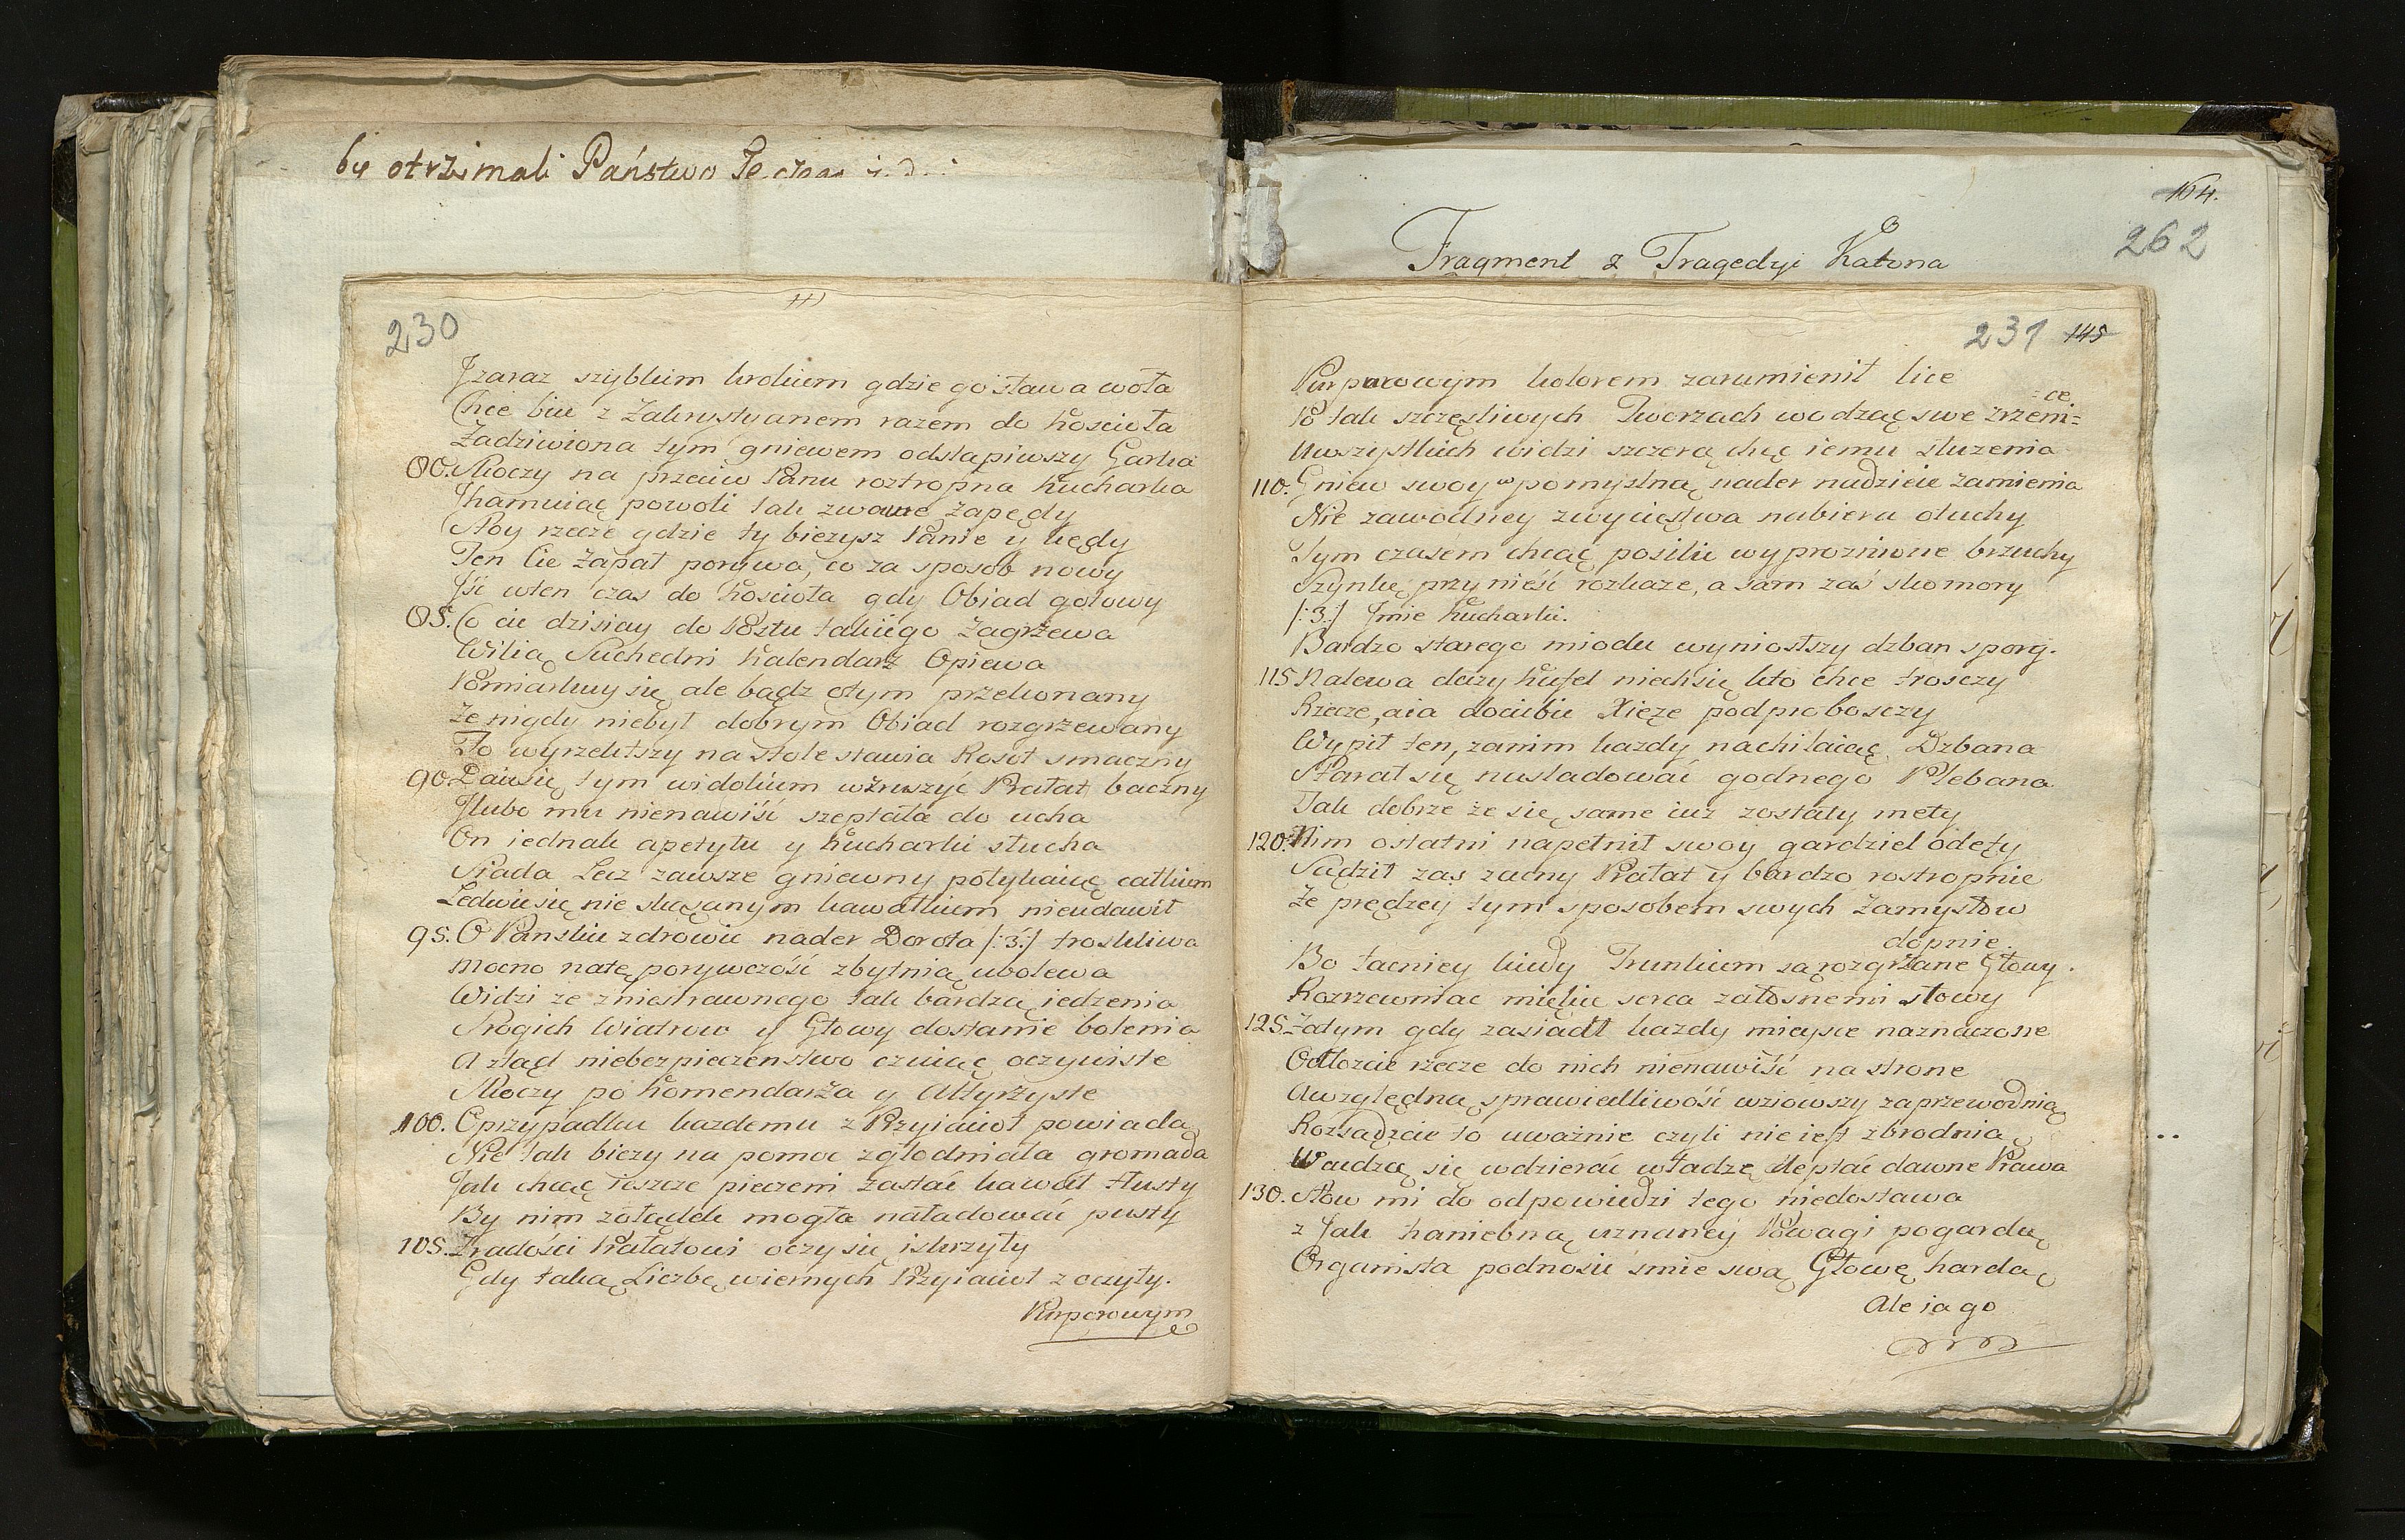 by otrzimali Państwo
230
Jzaraz szybkim krokiem gdzie go sława woła
Chce biec z Zakrystyanem razem do kościoła
Zadziwiona tym gniewem odstąpiwszy Garka
80. Skoczy na przeciw Panu roztropna kucharka
Jhamuiąc powoli tak zwawe zapędy
Stoy rzecze gdzie ty bieżysz Panie y kędy
Ten Cie zapał porywa, co za sposob nowy
Jść wten czas do kościoła gdy Obiad gotowy
85. Co cie dzisiay do Postu takiego zagrzewa
Wilią Suchedni kalendarz Opiewa
Pomiarkuy się ale bądz otym przekonany
że nigdy niebył dobrym Obiad rozgrzewany
To wyrzekłszy na stole stawia Rosoł smaczny
90. Daie się tym widokiem wzruszyć Prałat baczny
Jlubo mu nienawiść szeptała do ucha
On iednak apetytu y kucharki słucha
Siada Lecz zawsze gniewny połykaiąc całkiem
Ledwie się nie skąsanym kawałkiem nieudawił
95. O Panskie zdrowie nader Dorota /:3:/ troskliwa
mocno natę porywczość zbytnią ubolewa
Widzi ze zniestrawnego tak bardzo iedzenia
Srogich Wiatrow y Głowy dostanie bolenia
A ztąd niebezpieczenstwo czuiąc oczywiste
Skoczy po komendarza y Altyrzyste
100. O przypadku kazdemu z Przyiacioł powiada
Nie tak bieży na pomoc zgłodniała gromada
Jak chcąc ieszcze pieczeni zastać kawał tłusty
By nim zołądek mogła naładować pusty
105. Zradości Prałatowi oczy się iskrzyły
Gdy taką Liczbę wiernych Przyiacioł zoczyły.
Purporowym
164.
262
Fragment z Tragedyi Katona
231 145
Purpurowym kolorem zarumienił lice
Po tak szczęsliwych Tworzach wodząc swe zrzeni=
=ce
Uwszystkich widzi szczerą chęć iemu słuzenia
110. Gniew swoy w pomyslną nader nadzieie zamienia
Nie zawodney zwycięstwa nabiera otuchy
Tym czasem chcąc posilić wyproznione brzuchy
Szynkę przynieść rozkaze, a sam zaś skomory
/:3:/ Jmie kucharki.
Bardzo starego miodu wyniosłszy dzban spory.
115 Nalewa duzy kufel niech się kto chce troszczy
Rzecze, a ia dociebie Xięże podproboszczy
Wypił ten, zanim kazdy nachilaiąc Dzbana
Starał się nasladować godnego Plebana
Tak dobrze że się same iuz zostały męty
120. Nim ostatni napełnił swoy gardziel odęty
Sądził zas zacny Prałat y bardzo rostropnie
Że prędzey tym sposobem swych zamysłow
dopnie.
Bo łacniey kiedy Trunkiem są rozgrzane Głowy.
Rozrzewniac miękie serca załosnemi słowy
125. Zatym gdy zasiadł kazdy mieysce naznaczone
Odłozcie rzecze do nich nienawiść na strone
Awzględną sprawiedliwość wziowszy zaprzewodnią
Rozsądzcie to uważnie czyli nie iest zbrodnią
Wcudzą się wdzierać władzę deptać dawne Prawa
130. Słow mi do odpowiedzi tego niedostawa
z Jak haniebną uznaney Powagi pogardą
Organista podnosić śmie swą Głowę hardą
Ale iago